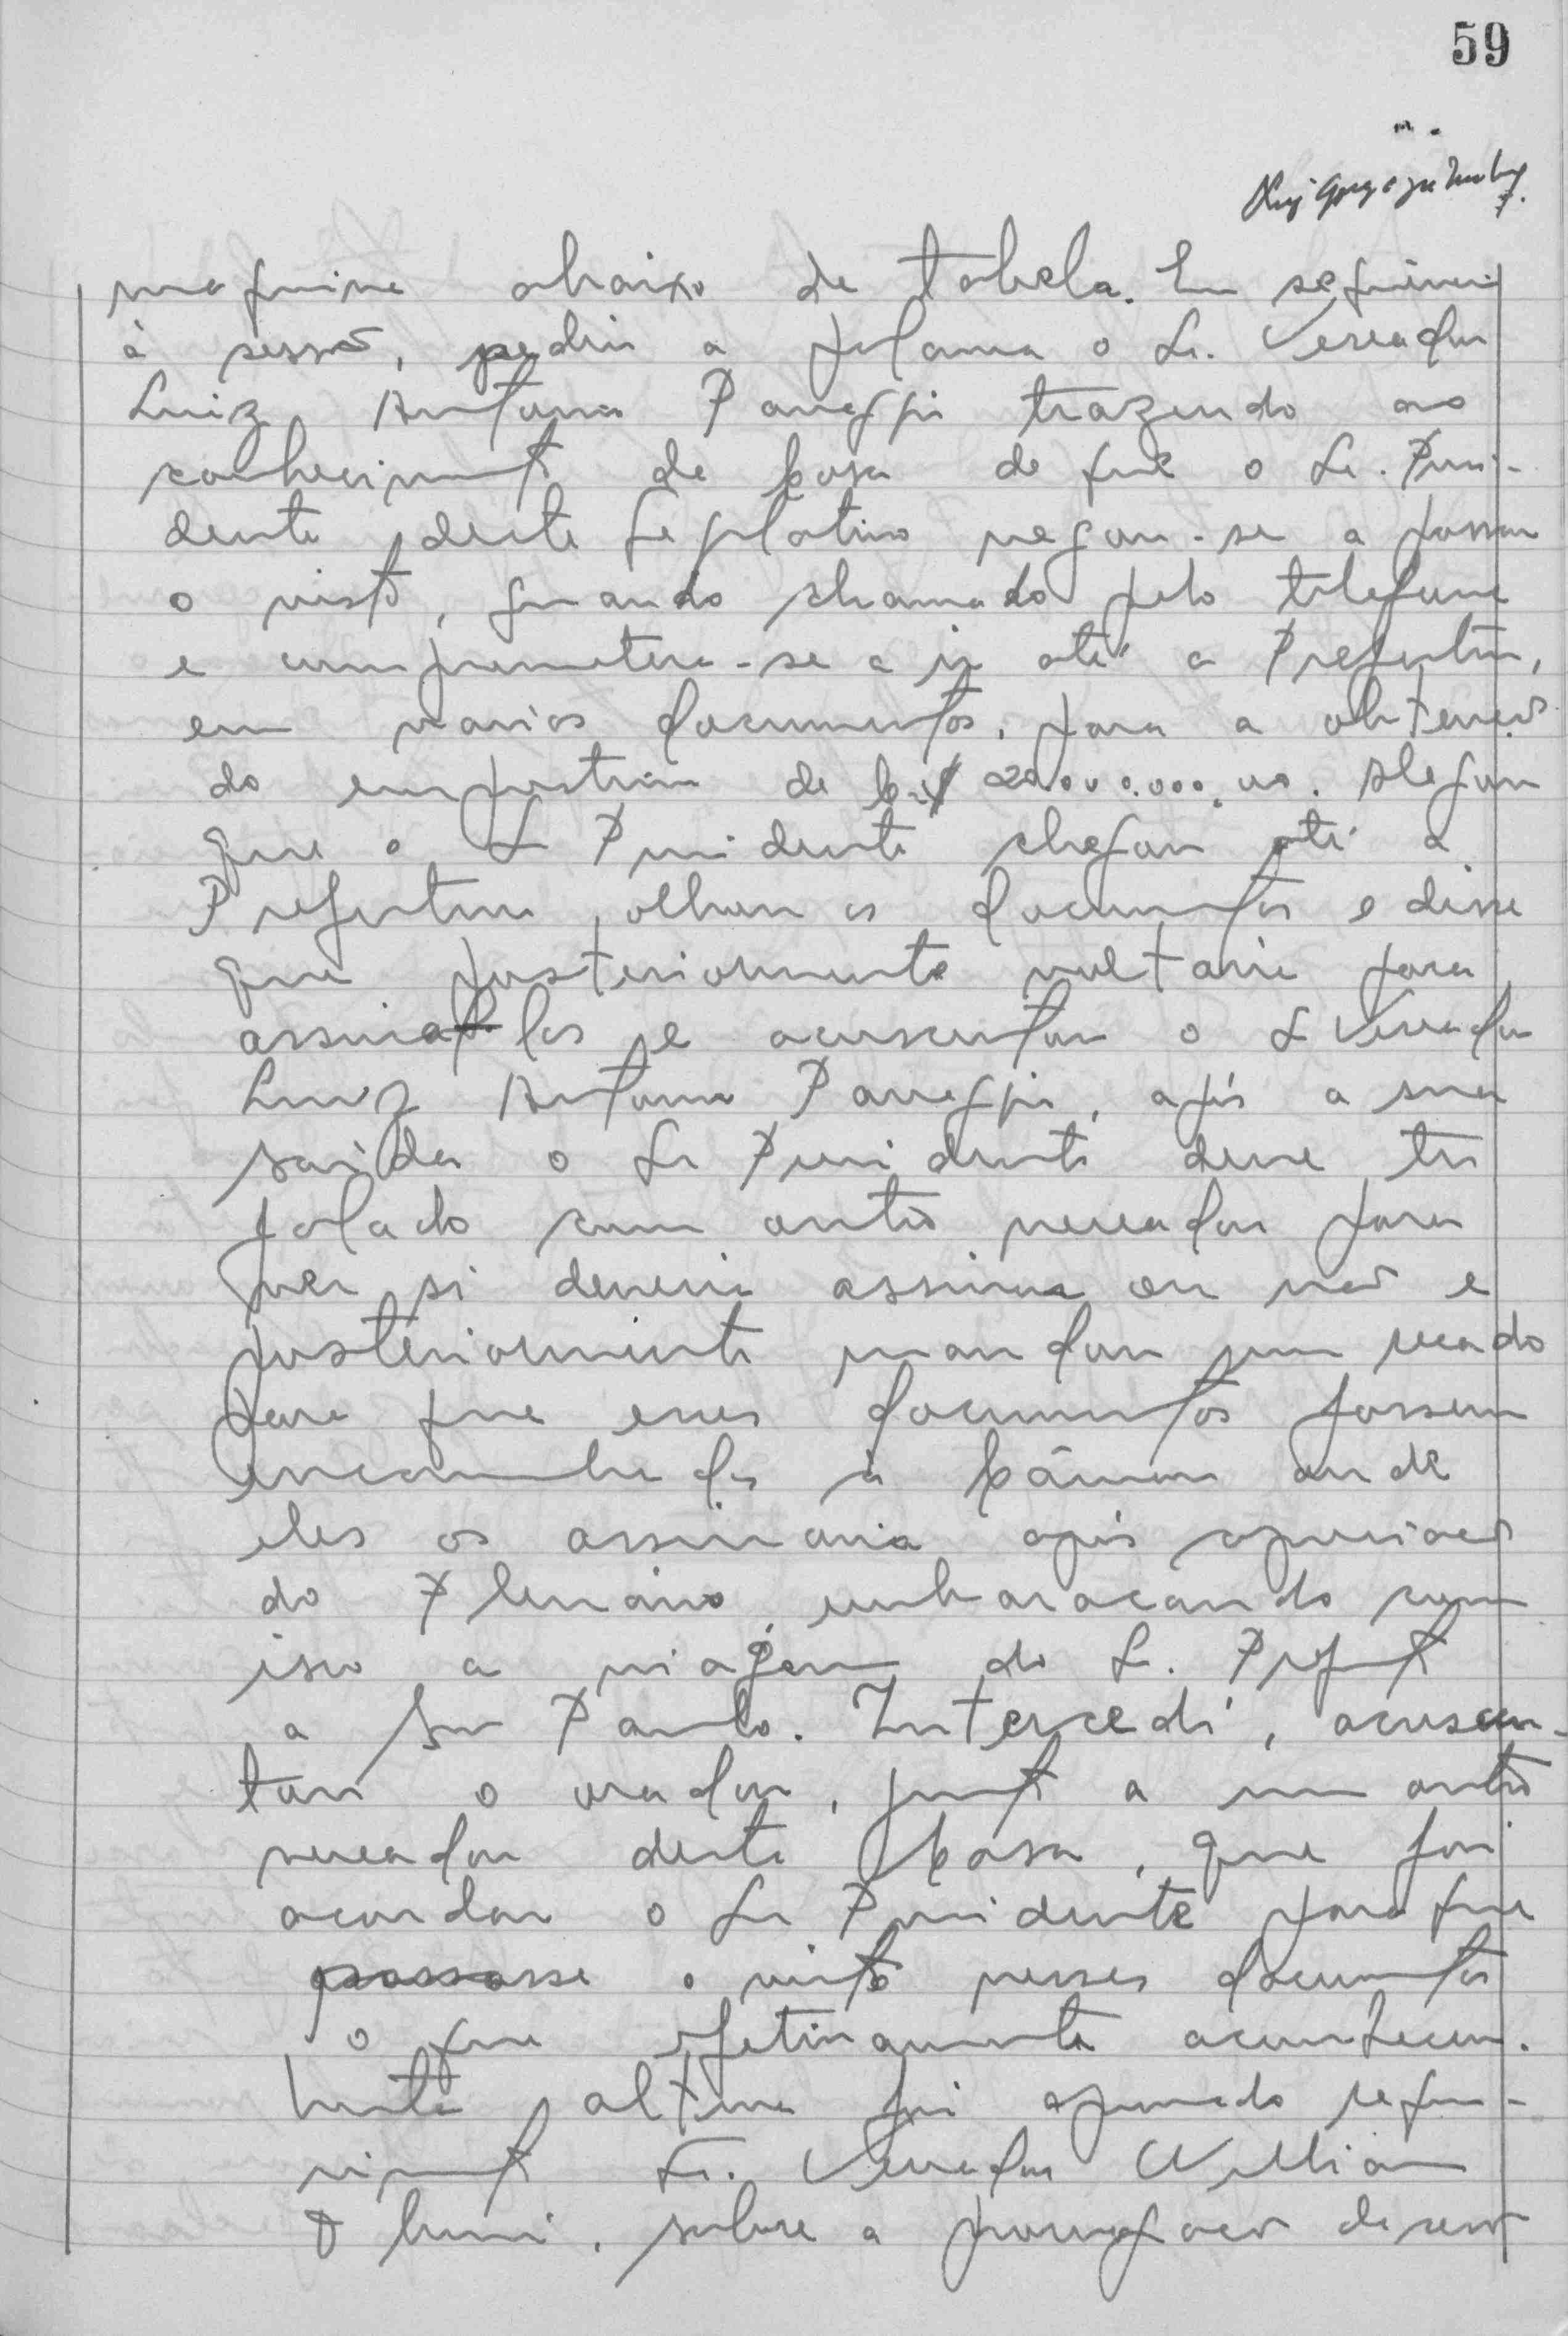 59
abaixo de tabela. Em sequencia
à sessão, pediu a palavra o Sr. Vereador
Luiz Antonio trazendo ao
conhecimento da Casa de que o Sr. Presi-
dente deste Legislativo negou-se a passar
o visto, quando chamado pelo telefone
e comprometera-se a ir até a Prefeitura,
em varios documentos, para a obtenção
do emprestimo de Cr$ 20.000.000,00. Alegou
que o Sr Presidente chegou até a
Prefeitura, olhou os documentos e disse
que posteriormente voltaria para
assina-los e acrescentou o Sr Vereador
Luiz Antonio, após a sua
saida o Sr Presidente deve ter
falado com outro vereador para
ver si deveria assinar ou não e
posteriormente mandou um recado
para que esses documentos fossem
encaminhados à Câmara onde
eles os assinaria após apreciação
do Plenário, embaraçando com
isso a viagem do Sr. Prefeito
a São Paulo. Intercedi, acrescen-
tou o orador, junto a um outro
vereador desta Casa, que foi
acordar o Sr Presidente para que
passasse o visto nesses documentos
o que efetivamente aconteceu.
Nesta altura foi aprovado reque-
rimento Sr. Vereador Willian
, sobre a prorrogação da sessão